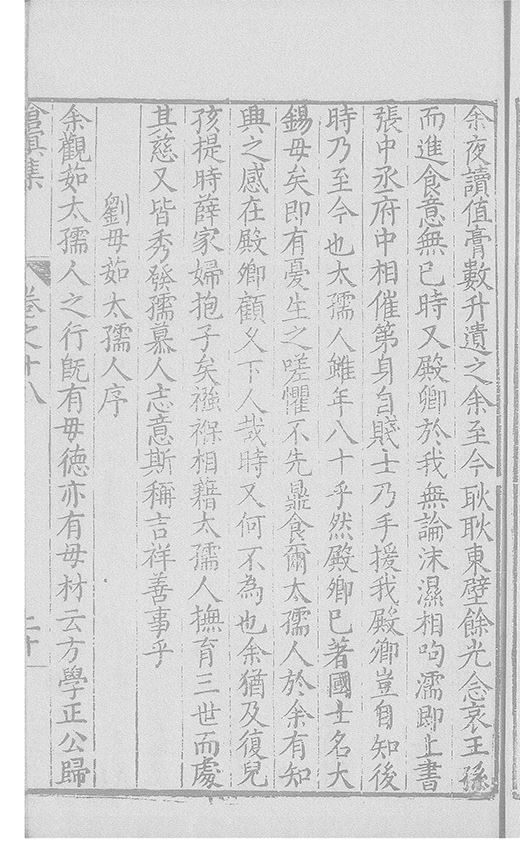 余夜讀值膏數升遺之余至今耿耿東壁餘光念哀王孫
而進食意無已時又殿卿於我無論沫濕相呴濡即上書
張中丞府中相催第身自賤士乃手援我殿卿豈自知後
時乃至今也太孺人雖年八十乎然殿卿已著國士名大
錫毋矣即有憂生之嗟懼不先鼎食爾太孺人於余有知
典之感在殿卿顧乆下人哉時又何不為也余猶及復兒
孩提時薛家婦抱子矣襁褓相藉太孺人撫育三世而處
其慈又皆秀發孺慕人志意斯稱吉祥善事乎
劉毋茹太孺人序
余觀茹太孺人之行旣有毋德亦有毋材云方學正公歸
滄溟集 卷之十八 二十一